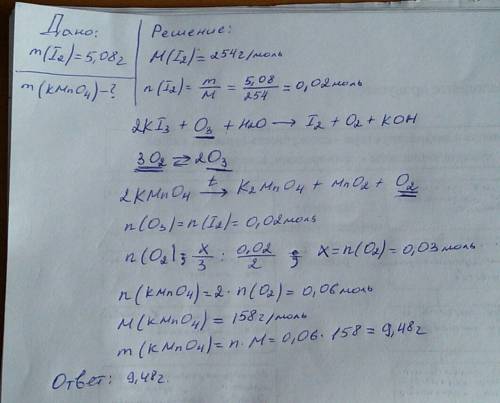 Дано:
m(I2)=5,08г
m(KMnO4)-?
Решение:
M(I2)=254г/моль
n(I2)= m/M = 5,08/254 = 0,02моль
2KI3 + O3 + H2O → I2 + O2 + KOH
3O2 ⇄ 2O3
2KMnO4 t→ K2MnO4 + MnO2 + O2
n(O3)=n(I2)=0,02моль
n(O2); x/3 : 0,02/2 ; x=n(O2)=0,03моль
n(KMnO4)=2·n(O2)=0,06моль
M(KMnO4)=158г/моль
m(KMnO4)=n·M=0,06·158=9,48г
Ответ: 9,48г.